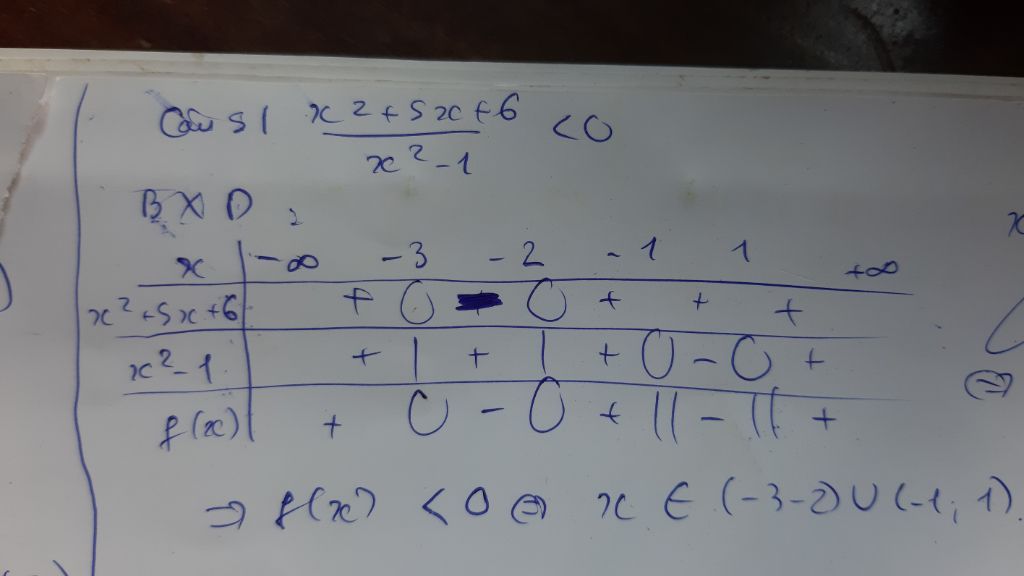 Câu 5 | x² + 5x + 6 / x² - 1 < 0
B X D :
x | -∞ -3 -2 -1 1 +∞
x² + 5x + 6 | + 0 - 0 + + +
x² - 1 | + | + | + 0 - 0 +
f(x) | + 0 - 0 + || - || +
⇒ f(x) < 0 ⇔ x ∈ (-3-2) ∪ (-1; 1).
x
⇔